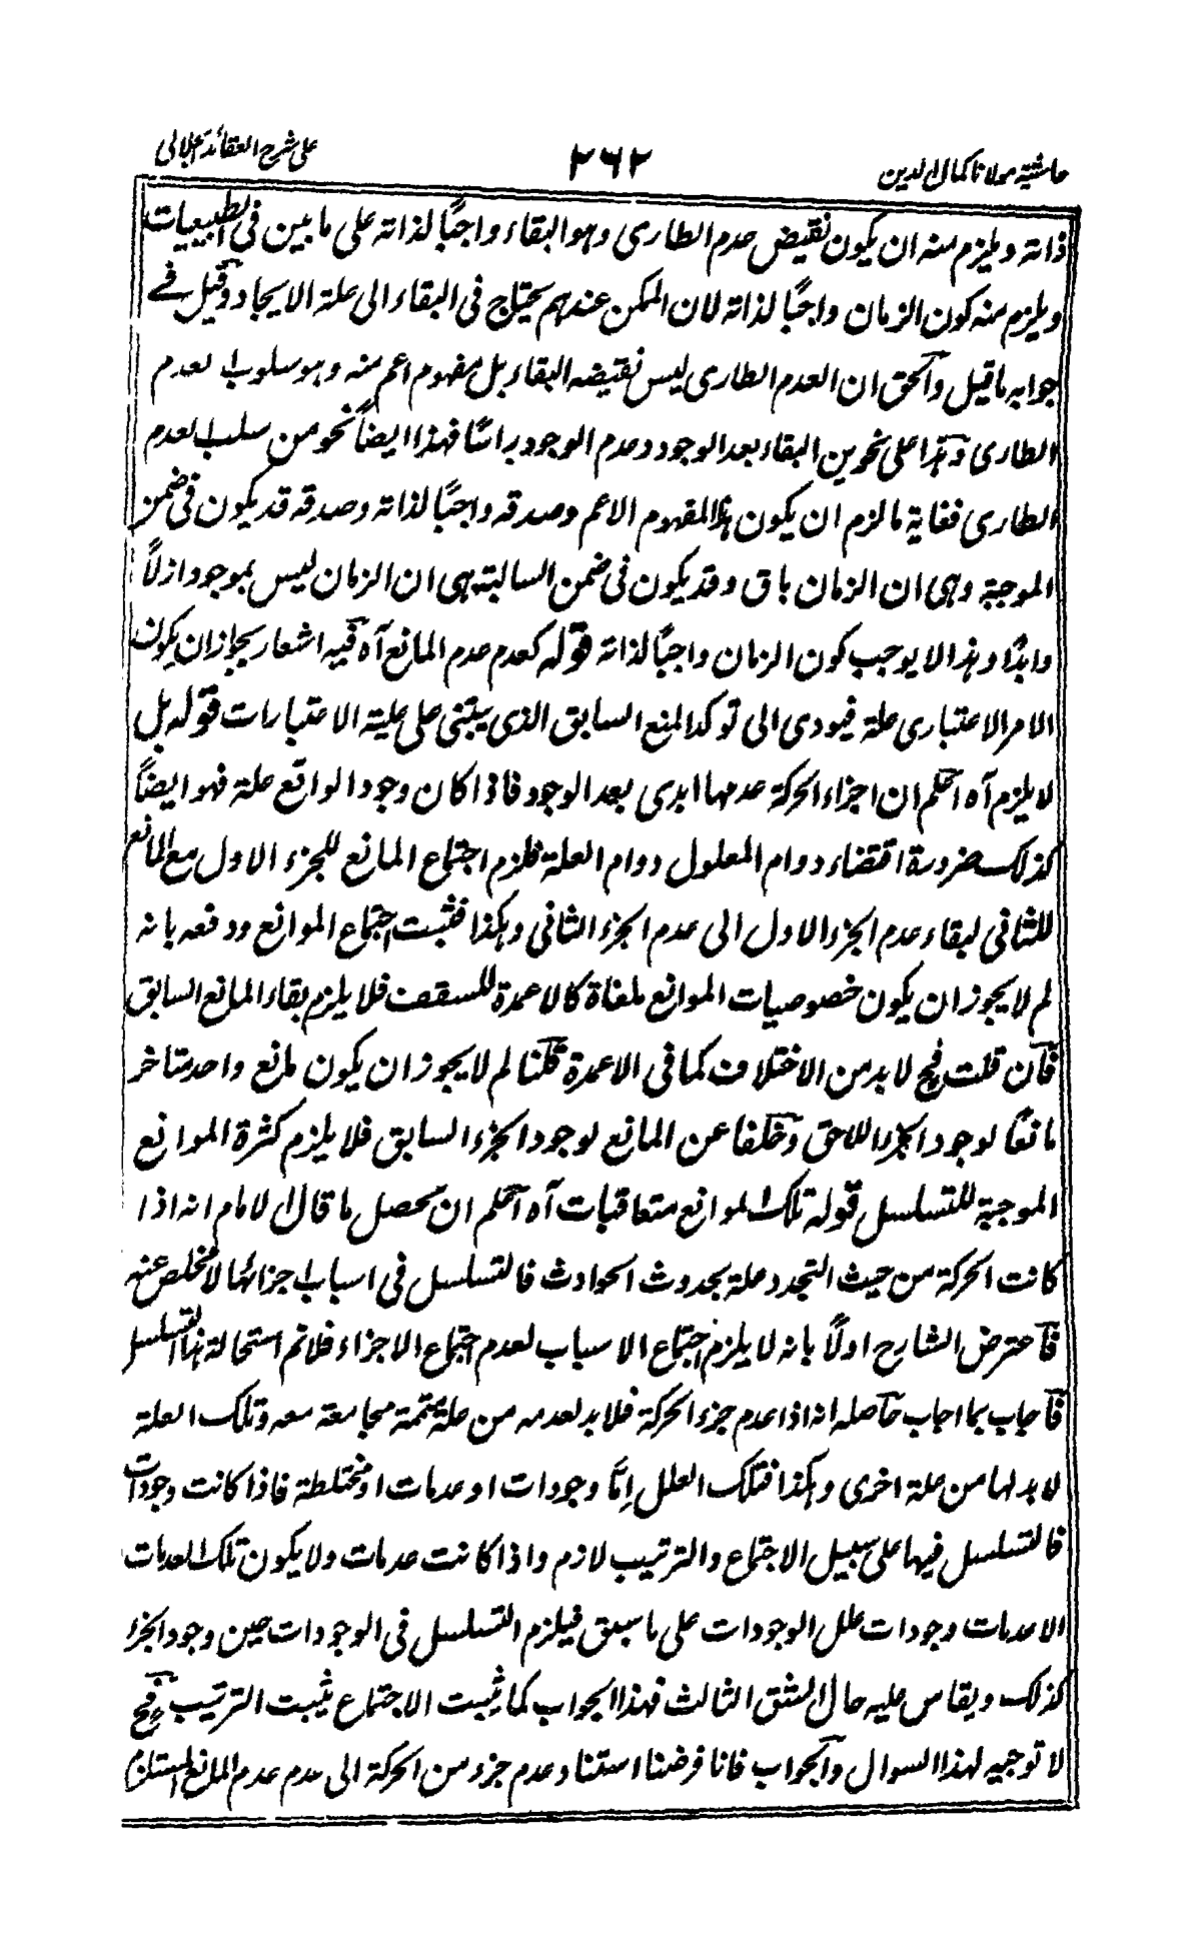 حاشية مولانا كمال الدين
٢٦٢
على شرح العقائد الجلالى
ذاته ويلزم منه ان يكون نقيض عدم الطارى وهو البقاء واجبًا لذاته على ما بين فى الطبيعيات
ويلزم منه كون الزمان واجبًا لذاته لان الممكن عندهم يحتاج فى البقاء الى علة الايجاد وقيل فے
جوابه ما قيل والحق ان العدم الطارى ليس نقيضه البقاء بل مفهوم اعم منه وهو سلوب لعدم
الطارى وهذا على نحوين البقاء بعد الوجود وعدم الوجود راسًا فهذا ايضاً نحو من سلب لعدم
الطارى فغاية ما لزم ان يكون هذا المفهوم الاعم وصدقه واجبًا لذاته وصدقه قد يكون فى ضمن
الموجبة وهى ان الزمان باق وقد يكون فى ضمن السالبة هى ان الزمان ليس بموجود ازلاً
وابدًا وهذا لا يوجب كون الزمان واجبًا لذاته قوله كعدم عدم المانع آه فيه اشعار بجواز ان يكون
الامر الاعتبارى علة فيودى الى توكد المنع السابق الذى يبتنى على علية الاعتبارات قوله بل
لا يلزم آه اعلم ان اجزاء الحركة عدمها ابدى بعد الوجود فاذا كان وجود الواقع علة فهو ايضاً
كذلك ضرورة اقتضاء دوام المعلول دوام العلة فلزم اجتماع المانع للجزء الاول مع المانع
للثانى لبقاء عدم الجزء الاول الى عدم الجزء الثانى وهكذا فثبت اجتماع الموانع ودفعه بانه
لم لا يجوز ان يكون خصوصيات الموانع ملغاة كالاعمدة للسقف فلا يلزم بقاء المانع السابق
فان قلت فح لا بد من الاختلاف كما فى الاعمدة قلنا لم لا يجوز ان يكون مانع واحد متاخر
مانعًا لوجود الجزء اللاحق وخلفا عن المانع لوجود الجزء السابق فلا يلزم كثرة الموانع
الموجبة للتسلسل قوله تلك الموانع متعاقبات آه اعلم ان محصل ما قال الامام انه اذا
كانت الحركة من حيث التجدد علة بحدوث الحوادث فالتسلسل فى اسباب اجزائها لا مخلص عنه
فاعترض الشارح اولًا بانه لا يلزم اجتماع الاسباب لعدم اجتماع الاجزاء فلا تم استحالة هذا التسلسل
فاجاب بما اجاب حاصله انه اذا عدم جزء الحركة فلا بد لعدمه من علة متممة مجامعة معه وتلك العلة
لا بد لها من علة اخرى وهكذا فتلك العلل امّا وجودات او عدمات او مختلطة فاذا كانت وجودات
فالتسلسل فيها على سبيل الاجتماع والترتيب لازم واذا كانت عدمات ولا يكون تلك العدمات
الا عدمات وجودات علل الوجودات على ما سبق فيلزم التسلسل فى الوجودات حين وجود الجزء
كذلك ويقاس عليه حال الشق الثالث فهذا الجواب كما يثبت الاجتماع يثبت الترتيب فح
لا توجيه لهذا السوال والجواب فانا فرضنا استناد عدم جزء من الحركة الى عدم عدم المانع المستلزم